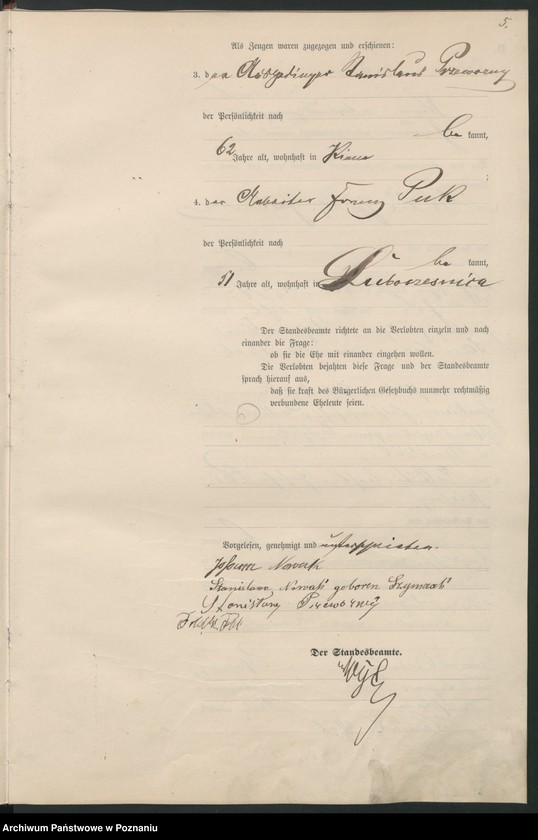 5.
Als Zeugen waren zugezogen und erschienen:
3. der Ausgedinger Stanislaus Przeworny
der Persönlichkeit nach
be kannt,
62 Jahre alt, wohnhaft in
4. der Arbeiter Franz Puk
der Persönlichkeit nach
be kannt,
51 Jahre alt, wohnhaft in Luboczesnica
Der Standesbeamte richtete an die Verlobten einzeln und nach
einander die Frage:
ob sie die Ehe mit einander eingehen wollen.
Die Verlobten bejahten diese Frage und der Standesbeamte
sprach hierauf aus,
daß sie kraft des Bürgerlichen Gesetzbuchs nunmehr rechtmäßig
verbundene Eheleute seien.
Vorgelesen, genehmigt und unterschrieben.
Johann Nowak
Stanislawa Nowak geboren Szymczak
Stanisław Przeworny
Der Standesbeamte.
Archiwum Państwowe w Poznaniu